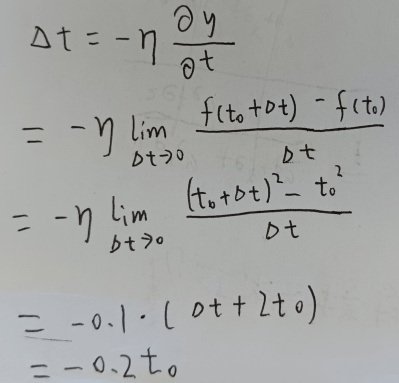 Δt = -η ∂y/∂t
= -η lim Δt→0 f(t₀+Δt) - f(t₀) / Δt
= -η lim Δt→0 (t₀+Δt)² - t₀² / Δt
= -0.1 · ( Δt + 2t₀)
= -0.2t₀